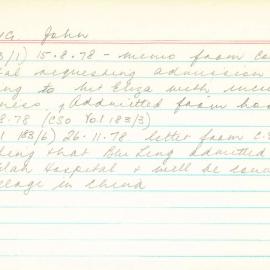 G John
3/1) 15.8.78 - memo from Co
tal requesting admission
ng to Mt Eliza with
ness. Admitted from ho
8.78 (CSO Vol 183/3)
l 183/6) 26.11.78 letter from C.S
ing that Blu Ling admitted
lan Hospital & will be
llage in China